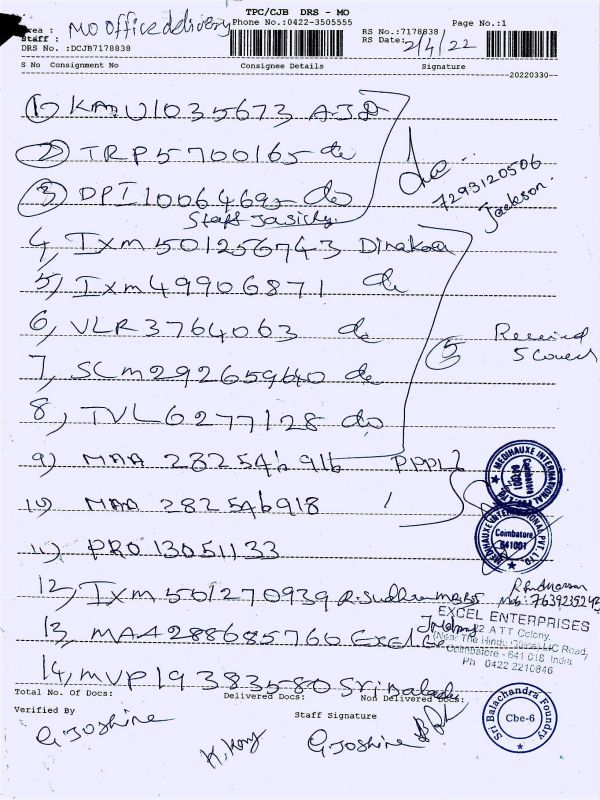 TPC/CJB DRS - MO
Area : MO Office delivery Phone No.:0422-3505555 Page No.:1
Staff : RS No.:7178838
DRS No. :DCJB7178838 RS Date: 2/4/22
S No Consignment No Consignee Details Signature
20220330
1) KMU1035673 AJD
2) TRP5700165 do
3) DPI1006469 do
Staff
7293120506
Jackson
4, IXM501256743
5) IXM49906871 do
6, VLR3764063 do
7, SCM292659640 do
8, TVL6277128 do
5 Received
5 Covers
9) MAA 282546916 PPPL
MEDIHAUXE INTERNATIONAL
Coimbatore
641001
10) MAA 282546918
MEDIHAUXE INTERNATIONAL PVT. LTD.
Coimbatore
641001
11) PRO 13051133
12, IXM501270939 R.
Mob: 7639235243
13, MAA288685760 Excel E
EXCEL ENTERPRISES
22 ATT Colony,
(Near The Hindu Office) LIC Road,
Coimbatore - 641 018 India
Ph 0422 2210846
14, MVP19383580 Sri Balach
Total No. Of Docs: Delivered Docs: Non Delivered Docs:
Verified By Staff Signature
G. Joshine G. Joshine
Sri Balachandra Foundry
Cbe-6